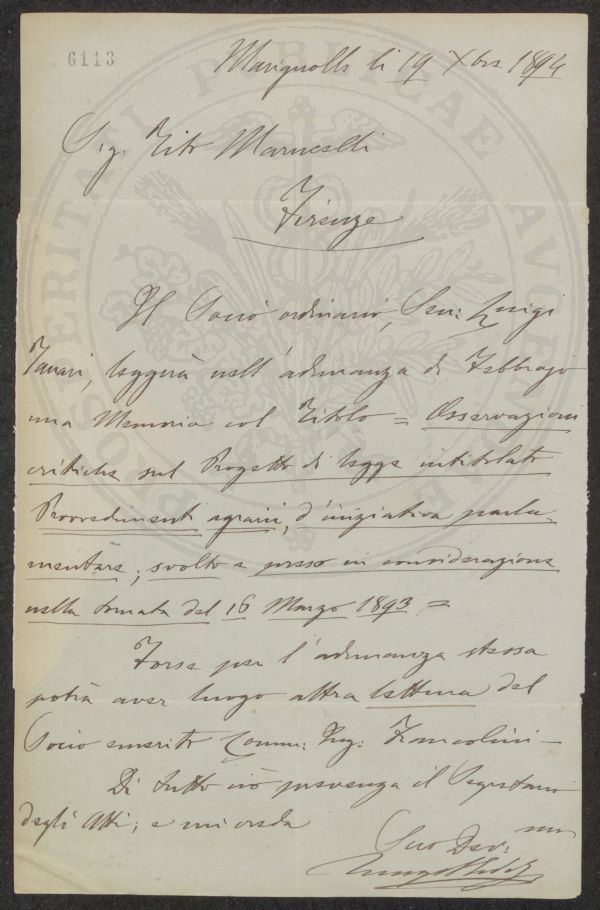 6113
Marignolle li 19 Xbre 1894
Sig. Tito Marucelli
Firenze
Il Socio ordinario, Sen: Luigi
Tanari, leggerà nell'adunanza di Febbrajo
una Memoria col Titolo = Osservazioni
critiche sul Progetto di legge intitolato
Provvedimenti agrarii, d'iniziativa parla
mentare, svolto e preso in considerazione
nella tornata del 16 Marzo 1893 =
Forse per l'adunanza stessa
potrà aver luogo altra lettura del
Socio emerito Comm: Ing: Francolini —
Di tutto ciò prevenga il Segretario
degli Atti; e mi creda
Suo Dev: mo
PROSPERITATI PUBLICAE AUGENDAE